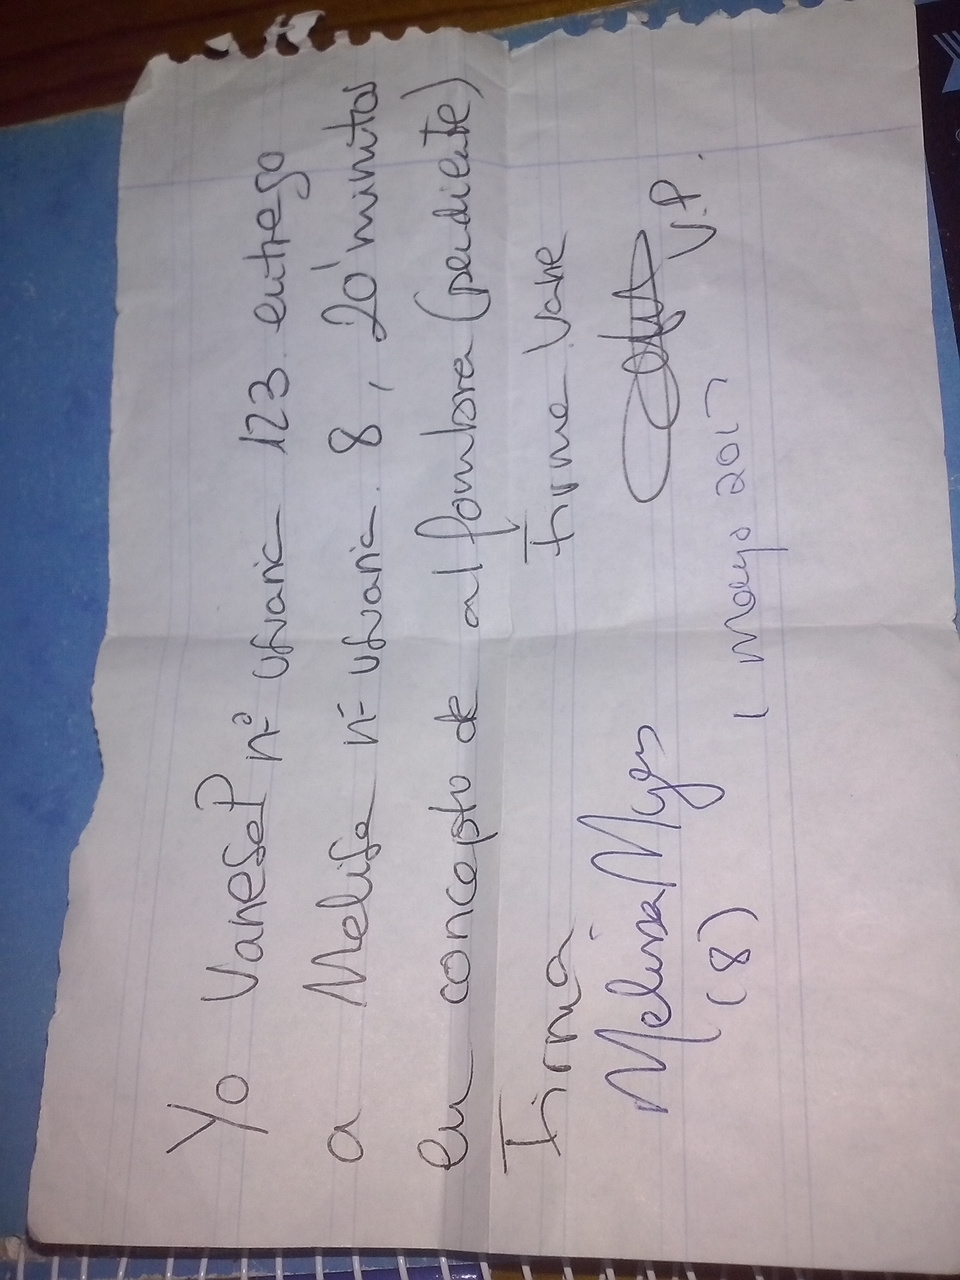 Yo Vanesa P nº usuaria 123 entrego
a Melisa nº usuaria 8, 20' minutos
en concepto de alfombra (pendiente)
Firma Firma Vane
Melissa Myers
V.P.
(8)
1 Mayo 2017